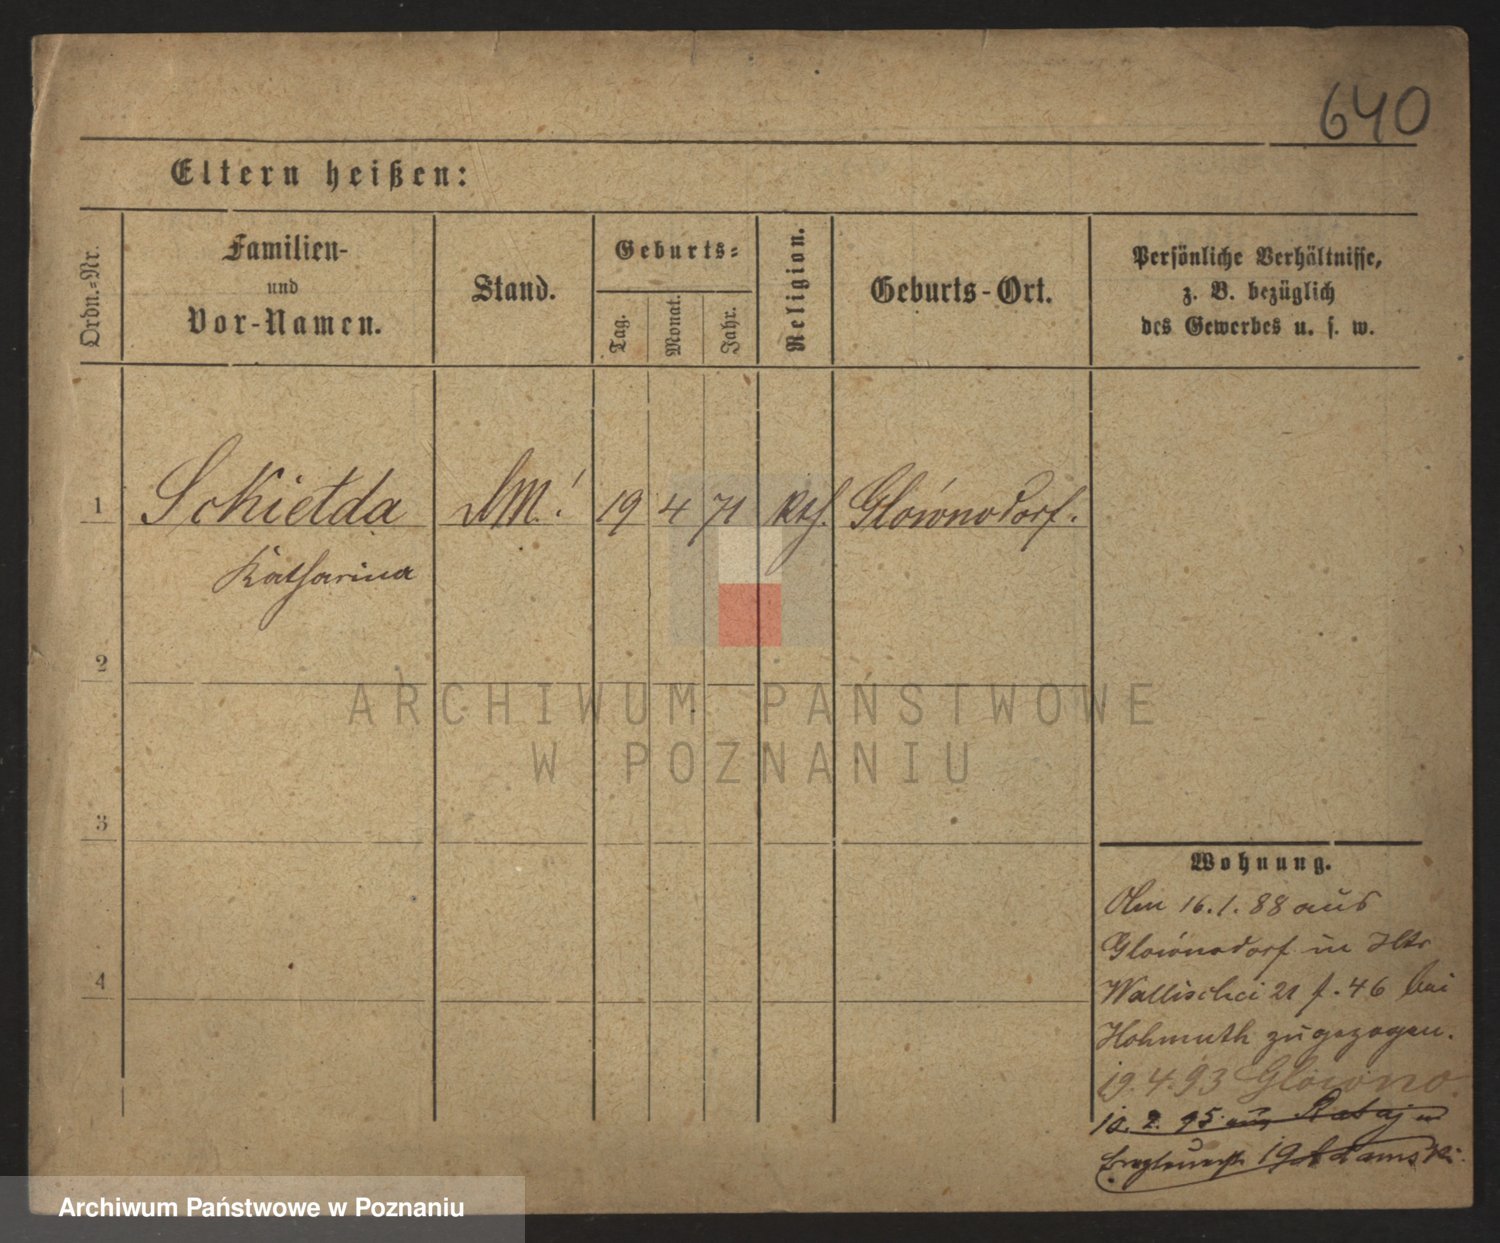 640
Eltern heißen:
Ordn.-Nr.
Familien-
und
Vor-Namen.
Stand.
Geburts-
Tag.
Monat.
Jahr.
Religion.
Geburts-Ort.
Persönliche Verhältnisse,
z. B. bezüglich
des Gewerbes u. s. w.
1 Schietda DM. 19 4 71 Kth. Glównodorf.
Katharina
2
ARCHIWUM PAŃSTWOWE
W POZNANIU
3
Wohnung.
16.1.88 aus
Glównodorf in
4
Wallischei 21 f. 46 bei
Hohmuth zugezogen.
19.4.93 Glówno
10. 2. 95 aus Rataj
19 Adamski
Archiwum Państwowe w Poznaniu